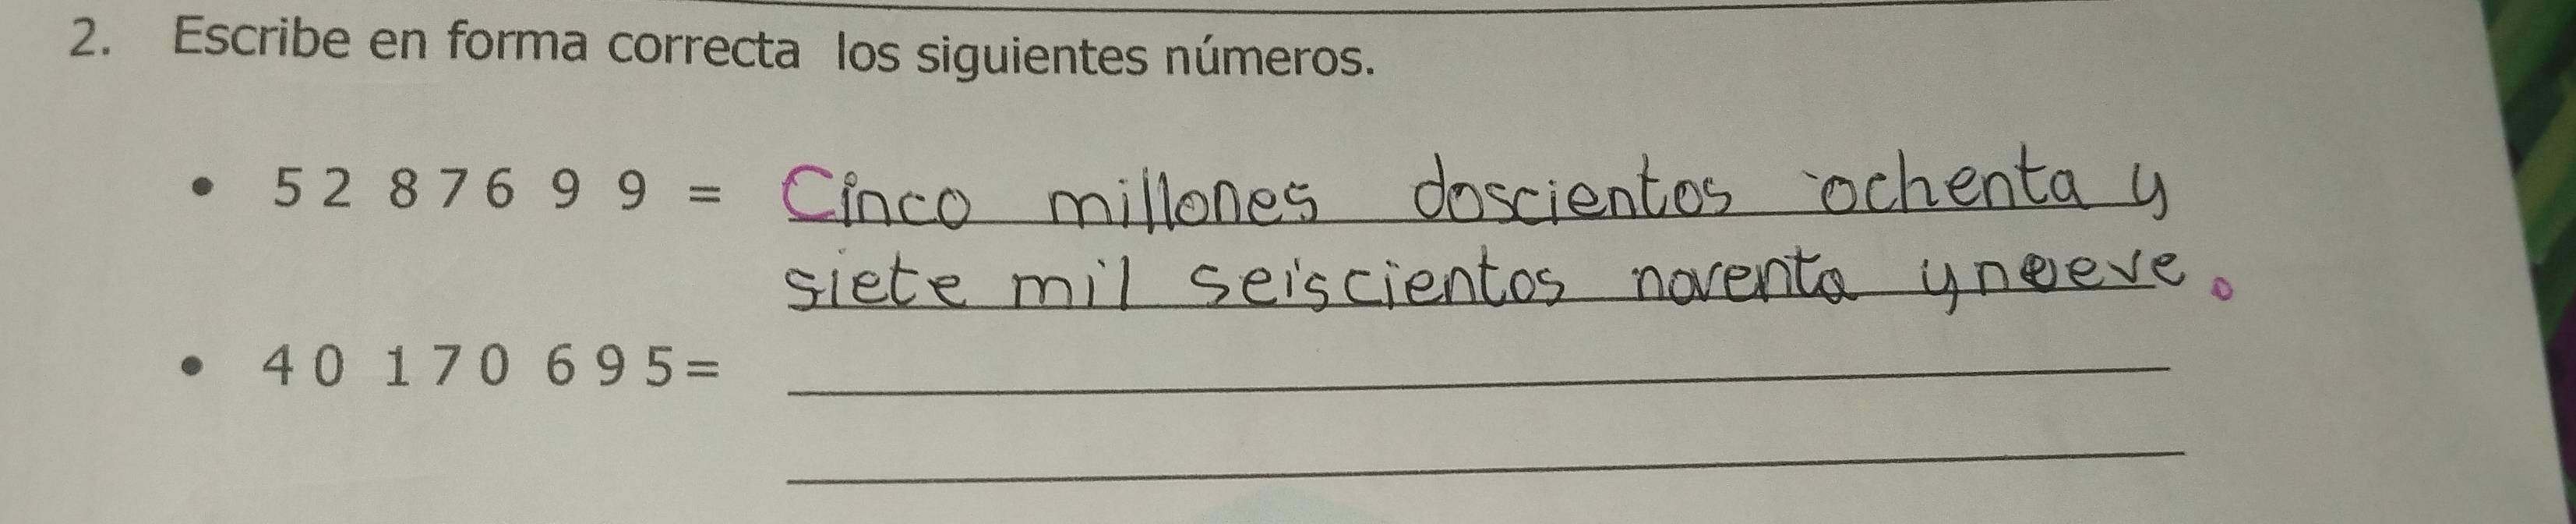 2. Escribe en forma correcta los siguientes números.
• 5 2 8 7 6 9 9 = Cinco millones doscientos ochenta y
siete mil seiscientos noventa y neeve.
• 4 0 1 7 0 6 9 5 =